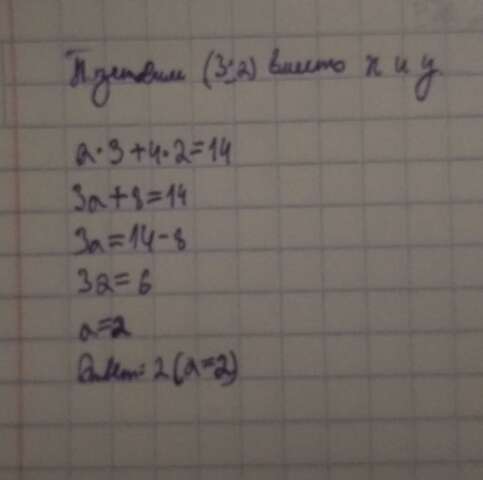 Подставим (3;2) вместо x и y
a·3+4·2=14
3a+8=14
3a=14-8
3a=6
a=2
Ответ: 2 (a=2)